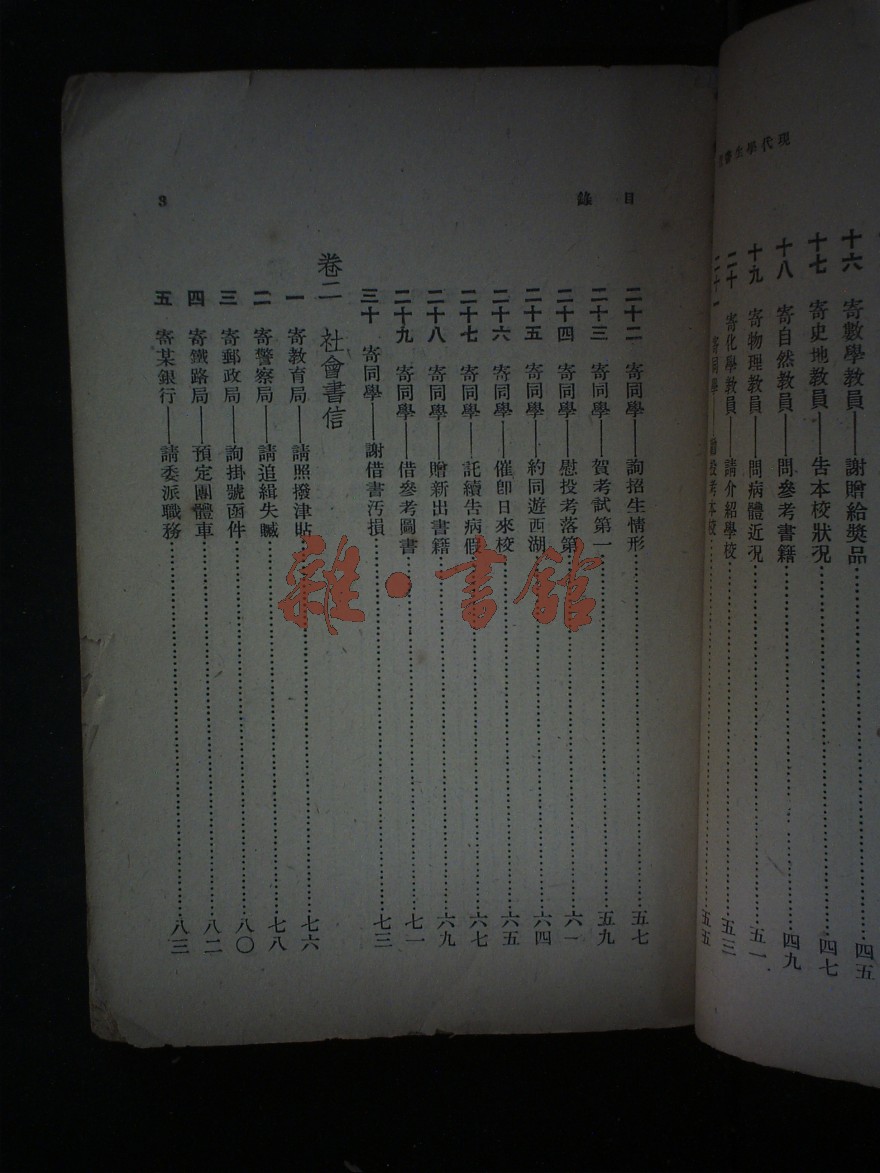 現代學生
十六 寄數學教員——謝贈給獎品 四五
十七 寄史地教員——告本校狀況 四七
十八 寄自然教員——問參考書籍 四九
十九 寄物理教員——問病體近況 五一
二十 寄化學教員——請介紹學校 五三
二十一 寄同學——勸投考本校 五五
目錄
3
二十二 寄同學——詢招生情形 五七
二十三 寄同學——賀考試第一 五九
二十四 寄同學——慰投考落第 六一
二十五 寄同學——約同遊西湖 六四
二十六 寄同學——催卽日來校 六五
二十七 寄同學——託續告病假 六七
二十八 寄同學——贈新出書籍 六九
二十九 寄同學——借參考圖書 七一
三十 寄同學——謝借書汚損 七三
卷二 社會書信
一 寄教育局——請照撥津貼 七六
二 寄警察局——請追緝失贓 七八
三 寄郵政局——詢掛號函件 八〇
四 寄鐵路局——預定團體車 八二
五 寄某銀行——請委派職務 八三
雜·書館